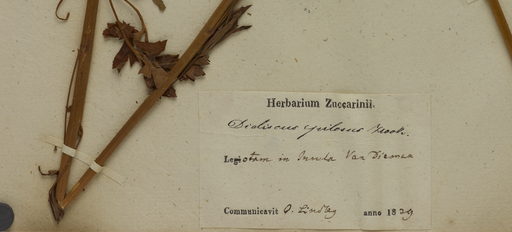 Herbarium Zuccarinii.
Didiscus pilosus Hook.
Legi otam in Insula Van Diemen
Communicavit O. Lindley anno 1829